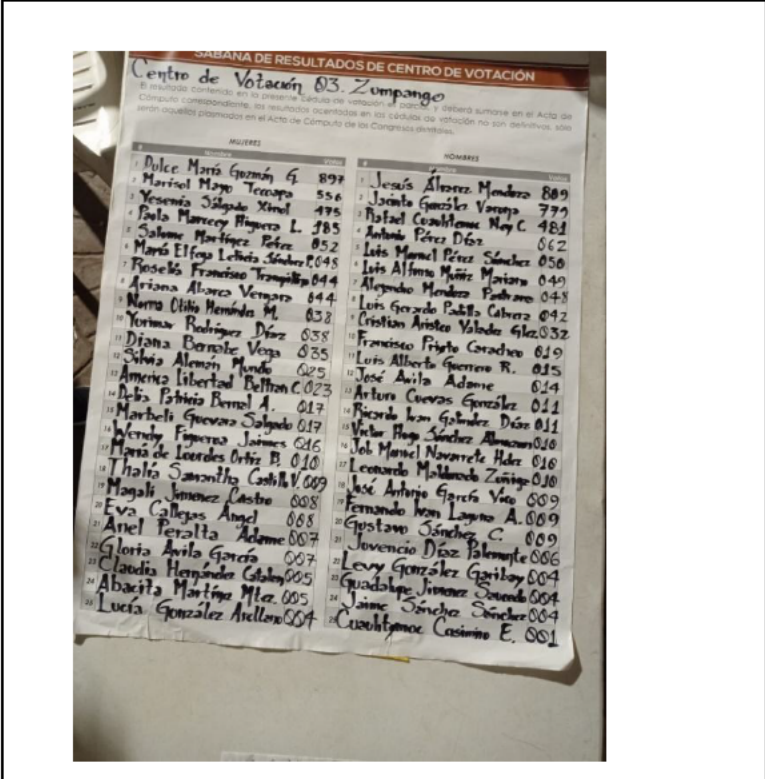 SABANA DE RESULTADOS DE CENTRO DE VOTACIÓN
Centro de Votación 03. Zumpango
El resultado contenido en la presente cédula de votación es parcial y deberá sumarse en el Acta de
Cómputo correspondiente, los resultados acentados en las cédulas de votación no son definitivos, sólo
serán aquellos plasmados en el Acta de Cómputo de los Congresos distritales.
MUJERES
# Nombre Votos
1 Dulce María Guzmán G. 897
2 Marisol Mayo Tecoapa 556
3 Yesenia Salgado Xinol 475
4 Paola Marcecy Higuera L. 185
5 Salome Martínez Pérez 052
6 María Elfega Leticia Sánchez P. 048
7 Roselia Francisco Tranquilino 044
8 Ariana Abarca Vergara 044
9 Norma Otilia Hernández M. 038
10 Yorimar Rodríguez Díaz 038
11 Diana Bernabe Vega 035
12 Silvia Alemán Mundo 025
13 America Libertad Beltran C. 023
14 Delia Patricia Bernal A. 017
15 Marbeli Guevara Salgado 017
16 Wendy Figueroa Jaimes 016
17 María de Lourdes Ortiz B. 010
18 Thalía Samantha Castillo V. 009
19 Magali Jimenez Castro 008
20 Eva Callejas Angel 008
21 Anel Peralta Adame 007
22 Gloria Avila García 007
23 Claudia Hernández Catalan 005
24 Abacita Martínez Mtez. 005
25 Lucía González Arellano 004
HOMBRES
# Nombre Votos
1 Jesús Álvarez Mendoza 889
2 Jacinto González Varona 779
3 Rafael Cuauhtemoc Ney C. 481
4 Antonio Pérez Díaz 062
5 Luis Manuel Pérez Sánchez 050
6 Luis Alfonso Muñiz Mariano 049
7 Alejandro Mendoza Pastrano 048
8 Luis Gerardo Padilla Cabrera 042
9 Cristian Aristeo Valadez Glez 032
10 Francisco Prieto Caracheo 019
11 Luis Alberto Guerrero R. 015
12 José Avila Adame 014
13 Arturo Cuevas González 011
14 Ricardo Ivan Galindez Díaz 011
15 Victor Hugo Sánchez Almazan 010
16 Job Manuel Navarrete Hdez 010
17 Leonardo Maldonado Zuñiga 010
18 José Antonio García Vico 009
19 Fernando Ivan Laguna A. 009
20 Gustavo Sánchez C. 009
21 Juvencio Díaz 006
22 Levy González Garibay 004
23 Guadalupe Jimenez Saucedo 004
24 Jaime Sánchez Sánchez 004
25 Cuauhtemoc Casimiro E. 001